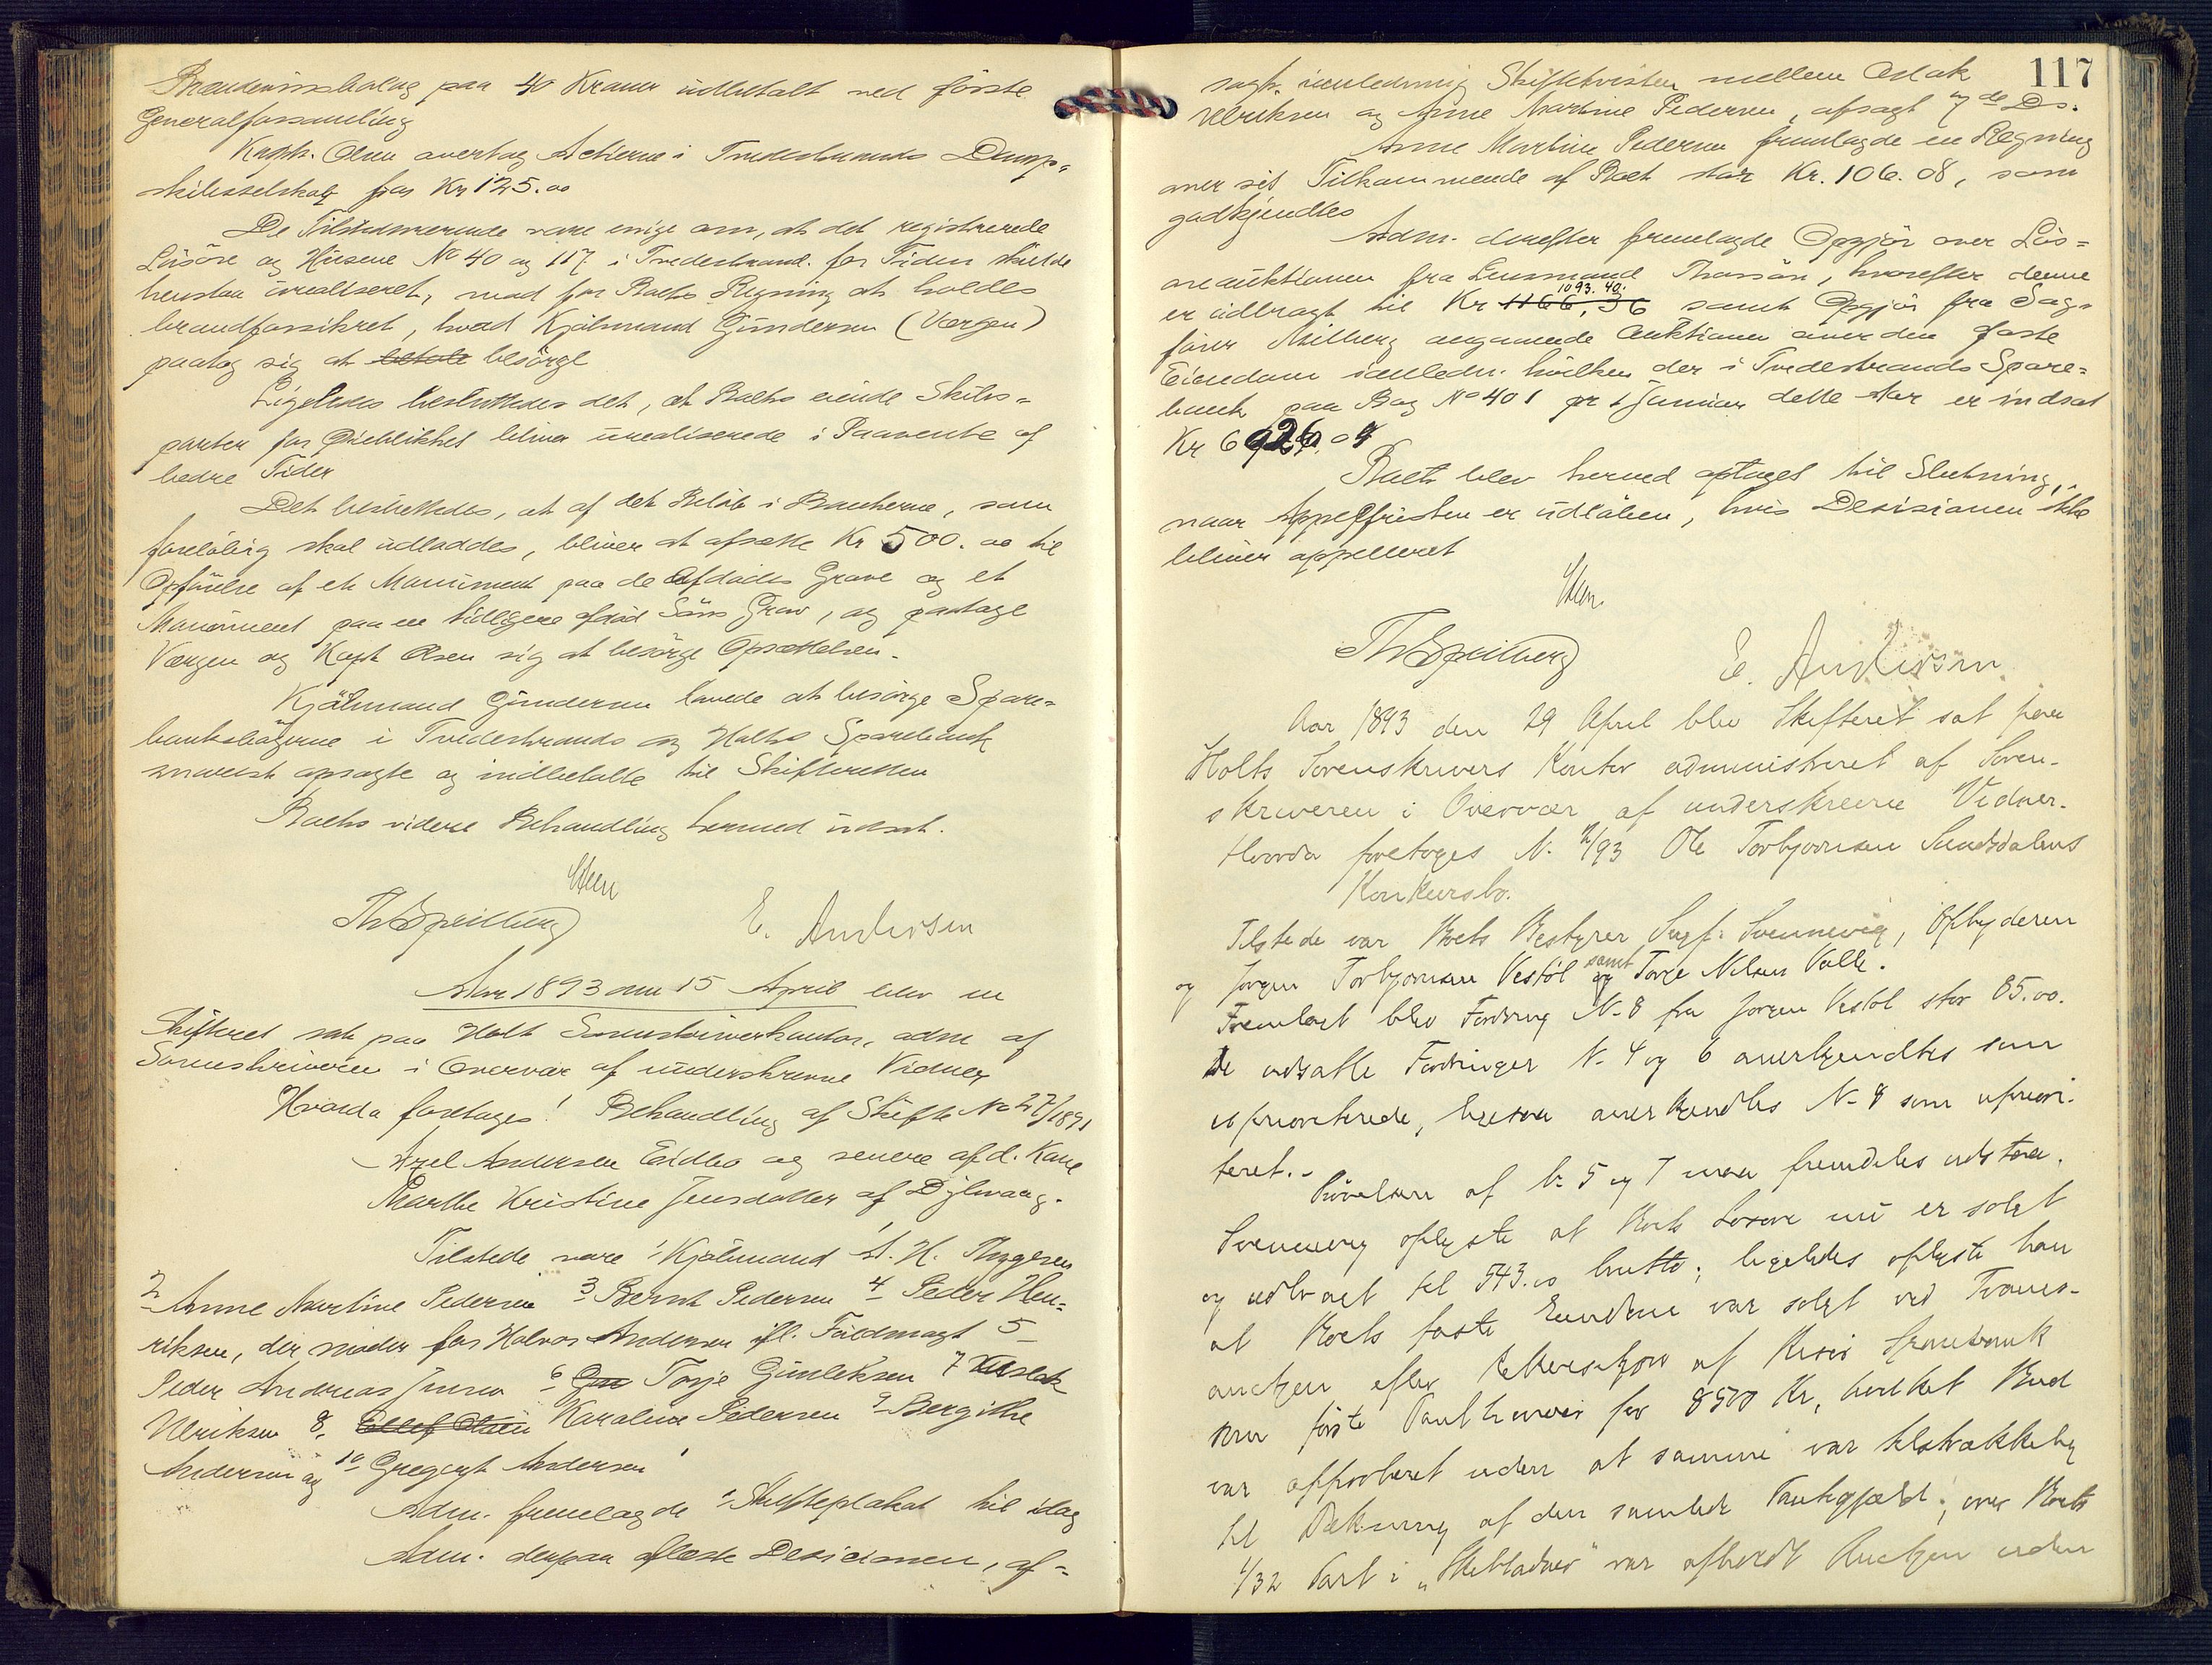 paa 40 Kroner udbetalt ved förste
Generalforsamling
Kapt. Olsen overtog Actierne i Tvedestrands Damp-
skibsselskab for Kr 125.00
De Tilstedeværende vare enige om, at det registrerede
Lösöre og Husene No 40 og 117 i Tvedestrand for Tiden skulde
henstaa urealiseret, mod for Boets Regning at holdes
brandforsikret, hvad Kjöbmand Gundersen (Værgen)
paatog sig at betale besörge
Ligeledes besluttedes det, at Boets eiende Skibs-
parter for Öieblikket bliver urealiserede i Paavente af
bedre Tider
Det besluttedes, at af det Belöb i Bankerne, som
forelöbig skal udloddes, bliver at afsætte Kr 500.00 til
Opförelse af et Monument paa de Afdödes Grave og et
Monument paa en tidligere afdöd Söns Grav, og paatoge
Værgen og Kapt Olsen sig at besörge Opsættelsen.
Kjöbmand Gundersen lovede at besörge Spare-
banksbögerne i Tvedestrands og Holts Sparebank
snarest opsagte og indbetalte til Skifteretten
Boets videre Behandling hermed udsat.
Steen
Th Spilling E. Andersen
Aar 1893 den 15 April blev en
Skifteret sat paa Holt Sorenskriverkontor, adm af
Sorenskriveren i Overvær af underskrevne Vidner
Hvorda foretoges: Behandling af Skifte No 27/1891
Axel Andersen Eidbo og senere afd. Kone
Marthe Kristine Jensdatter af Dybvaag.
Tilstede vare 1 Kjöbmand A. H. Thygesen
2 Anne Martine Pedersen 3 Bernt Pedersen 4 Peder Hen-
riksen, der möder for Halvor Andersen ifl. Fuldmagt 5
Peder Andreas Jensen 6 Gun Torje Gunleksen 7 Aslak
Ulriksen 8. Ellef Olsen Karoline Pedersen 9 Bergithe
Andersen og 10 Gregert Andersen
Adm. fremlagde 1 Skifteplakat til idag
Adm. derpaa oplæste Decisionen, af-
117
sagt. Skiftetvisten mellem Aslak
Ulriksen og Anne Martine Pedersen, afsagt og de Ds.
Anne Martine Pedersen fremlagde en Regning
over sit Tilkommende af Boet stor Kr. 106.08, som
godkjendtes
Adm. derefter fremlagde Opgjör over Lös-
öreauktionen fra Lensmand Thorsön, hvorefter denne
1093.40.
er udbragt til Kr 1166,36 samt Opgjör fra Sag-
förer Milberg angaaende Auktionen over den faste
Eiendom hvilken der i Tvedestrands Spare-
bank paa Bog No 401 pr 1 Januar dette Aar er indsat
Kr 6926.04
Boet blev hermed optaget til Slutning,
naar Appelfristen er udlöben, hvis Decisionen ikke
bliver appelleret
Steen
Th Spilling E. Andersen
Aar 1893 den 29 April blev Skifteret sat paa
Holts Sorenskrivers Kontor administreret af Soren-
skriveren i Overvær af underskrevne Vidner.
Hvorda foretoges N. /93 Ole Torbjørnsen Sundsdalens
Konkursbo.
Tilstede var Boets Bestyrer Sagf. Svennevig, Opbyderen
samt
og Jørgen Torbjørnsen Vestøl og Torje Nilsen Valle.
Fremlagt blev Fordring N. 8 fra Jørgen Vestøl stor 85.00.
De udsatte Fordringer N. 4 og 6 anerkjendtes som
uprioriterede, ligesaa anerkjendtes N. 8 som upriori-
teret.-
Prøvelsen af N. 5 og 7 maa fremdeles udstaa.
Svennevig oplyste at Boets Løsøre nu er solgt
og udbragt til 543.10 brutto; ligeledes oplyste han
at Boets faste Eiendom var solgt ved Tvangs-
auction efter af Risør Sparebank
som første Panthaver for 8500 Kr, hvilket Bud
var approberet uden at samme var tilstrækkelig
til Dækning af den samlede Pantegjæld; over Boets
1/32 Part i „Skibladner" var afholdt Auction uden